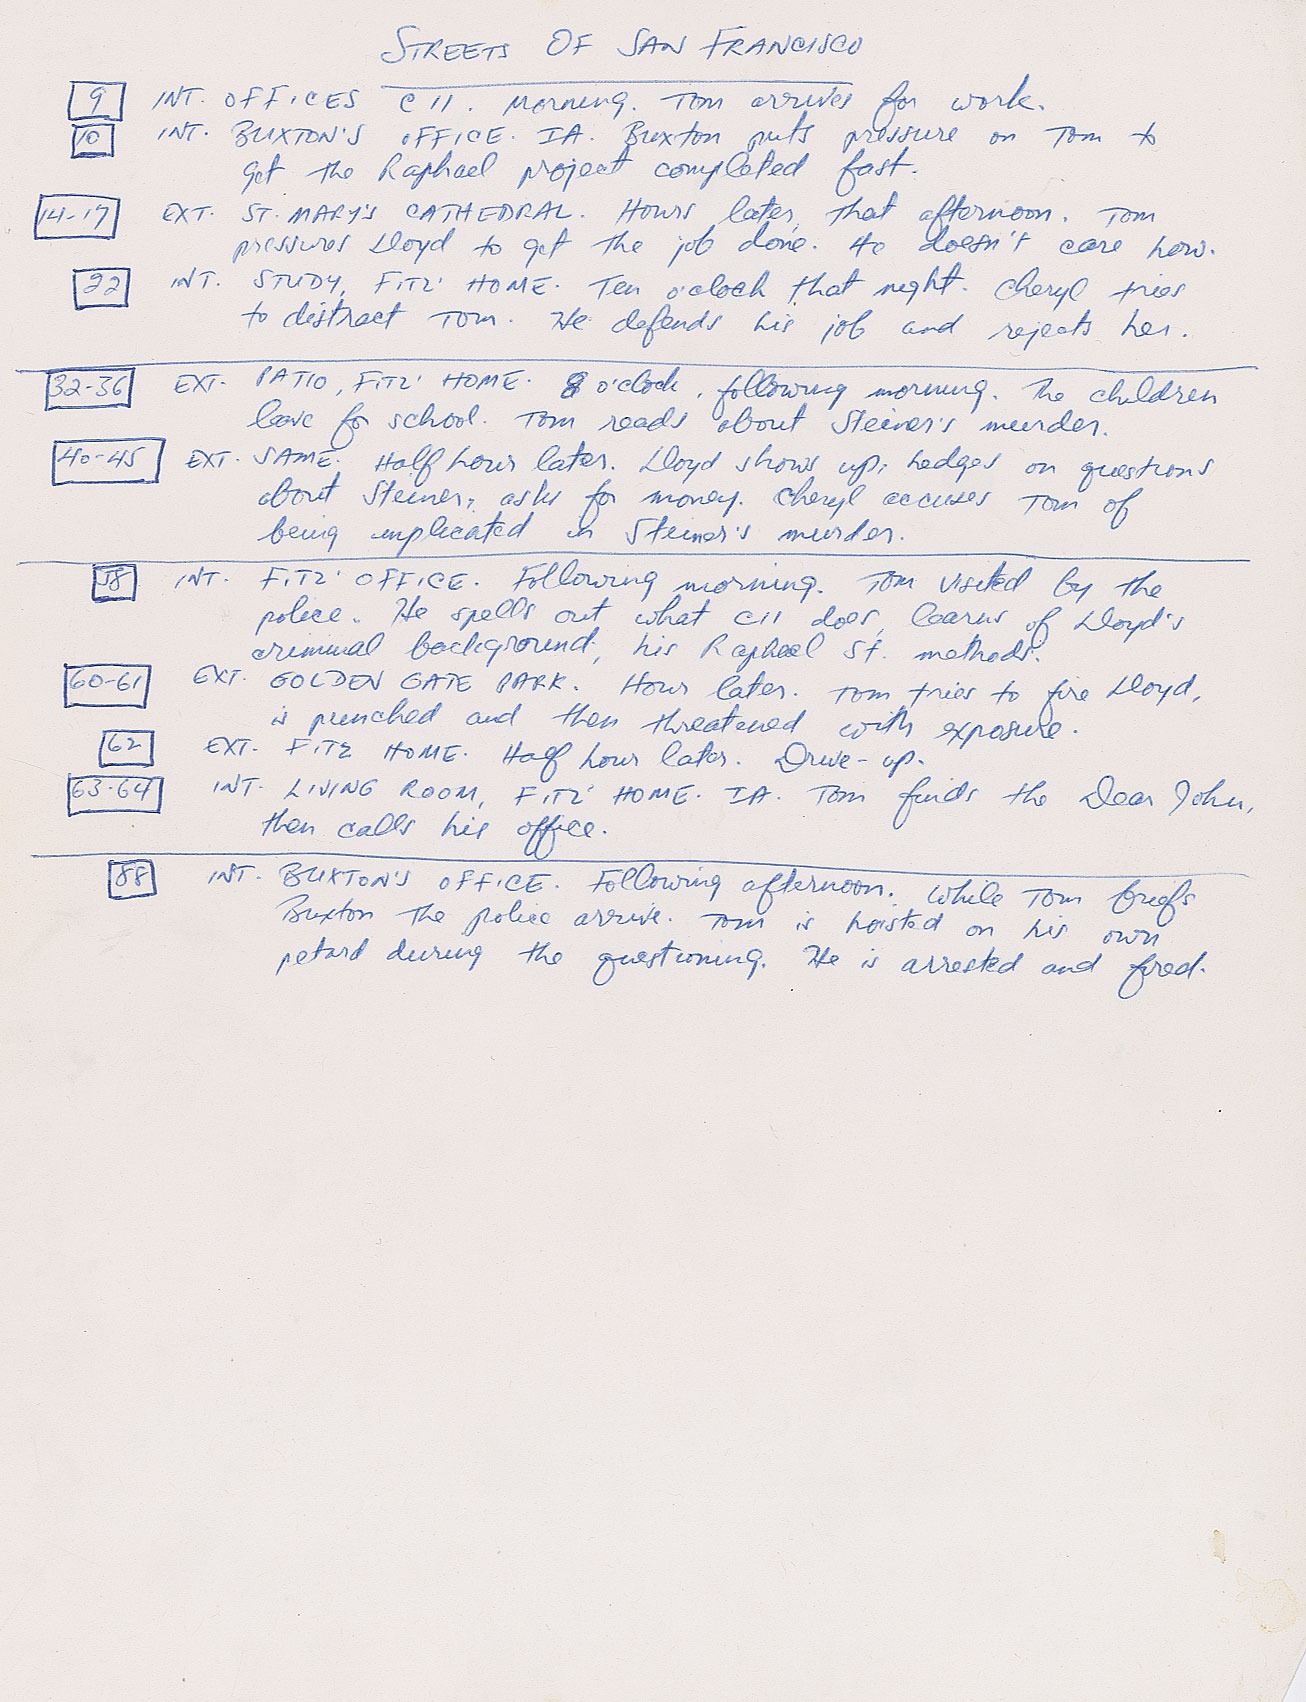 STREETS OF SAN FRANCISCO
9 INT. OFFICES C11. Morning. Tom arrives for work.
10 INT. BUXTON'S OFFICE. IA. Buxton puts pressure on Tom to
get the Raphael project completed fast.
14-17 EXT. ST. MARY'S CATHEDRAL. Hours later, that afternoon. Tom
pressures Lloyd to get the job done. He doesn't care how.
22 INT. STUDY, FITZ' HOME. Ten o'clock that night. Cheryl tries
to distract Tom. He defends his job and rejects her.
32-36 EXT. PATIO, FITZ' HOME. 8 o'clock, following morning. The children
leave for school. Tom reads about Steiner's murder.
40-45 EXT. SAME. Half hour later. Lloyd shows up, hedges on questions
about Steiner, asks for money. Cheryl accuses Tom of
being implicated in Steiner's murder.
58 INT. FITZ' OFFICE. Following morning. Tom visited by the
police. He spells out what C11 does, learns of Lloyd's
criminal background, his Raphael St. methods.
60-61 EXT. GOLDEN GATE PARK. Hour later. Tom tries to fire Lloyd,
is punched and then threatened with exposure.
62 EXT. FITZ HOME. Half hour later. Drive-up.
63-64 INT. LIVING ROOM, FITZ' HOME. IA. Tom finds the Dear John,
then calls his office.
88 INT. BUXTON'S OFFICE. Following afternoon. While Tom briefs
Buxton the police arrive. Tom is hoisted on his own
petard during the questioning. He is arrested and fired.